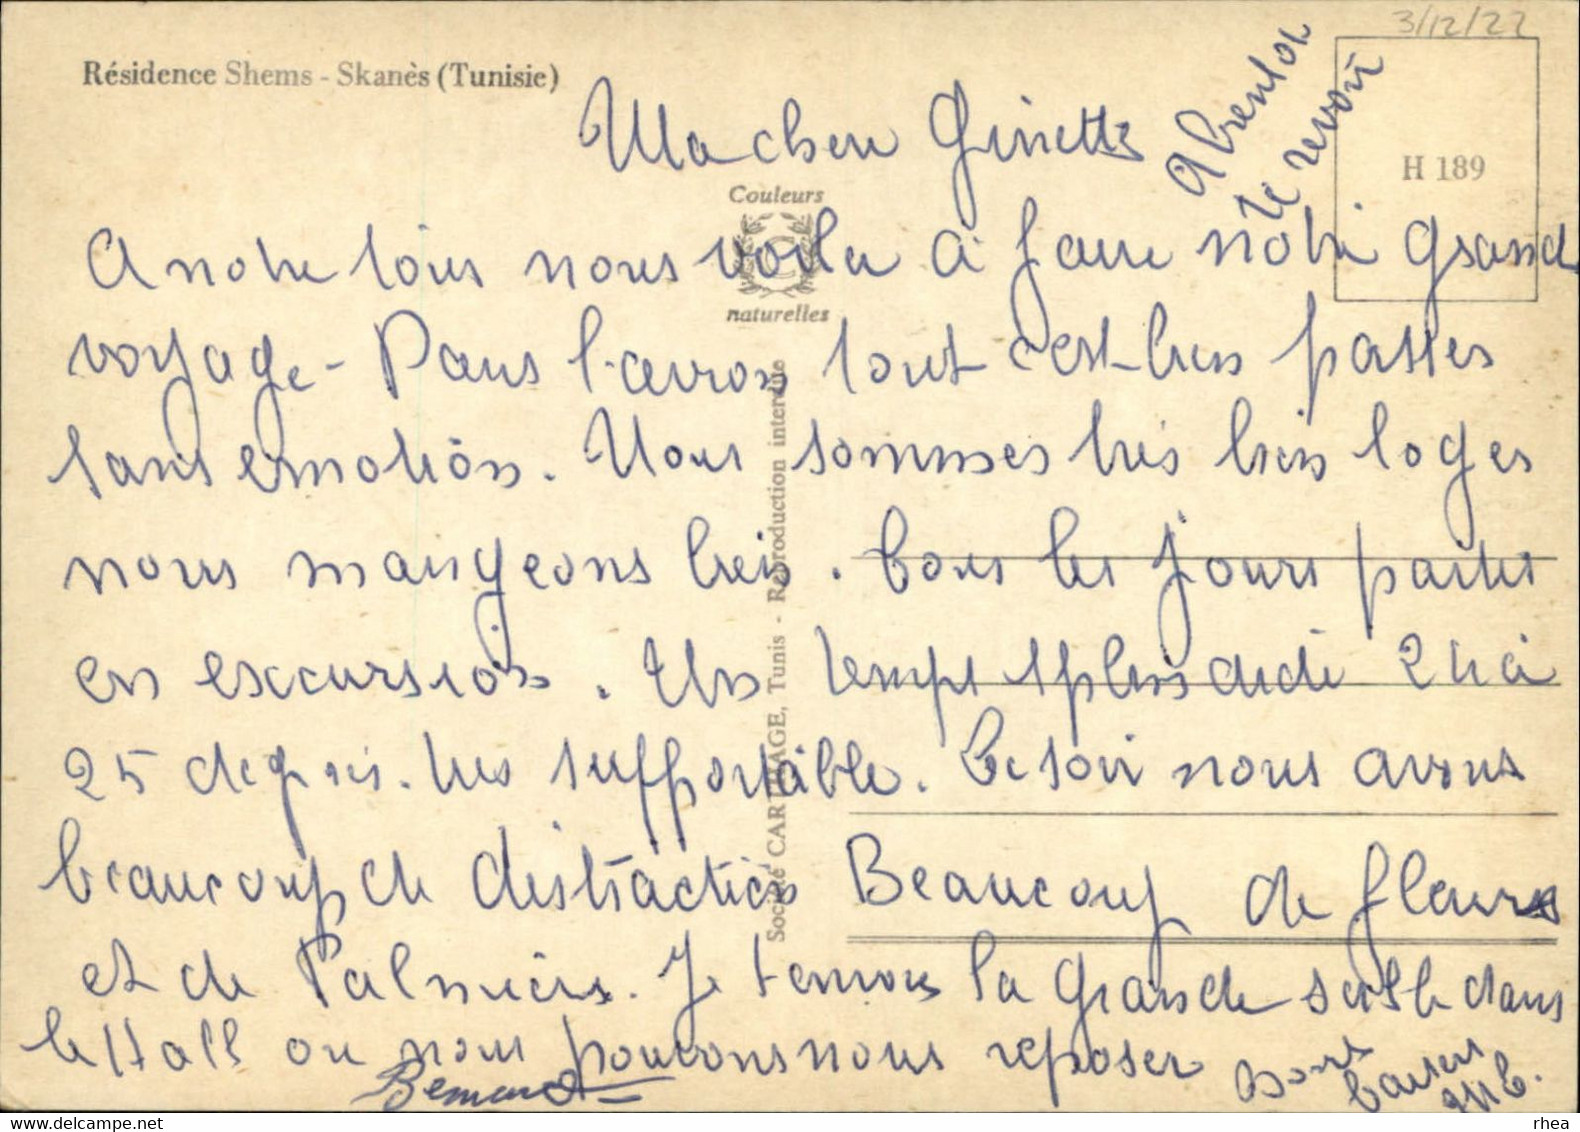 3/12/22
Résidence Shems - Skanès (Tunisie)
H 189
Couleurs
naturelles
Société CARTHAGE, Tunis - Reproduction interdite
A bientot
te revoir
Ma chere Ginette
A notre tour nous voila a faire notre grand
voyage - Dans l'avion tout c'est bien passes
sans emotion. Nous sommes très bien loges
nous mangeons bien. Tous les jours parties
en excursion. Un temps splendide 24 à
25 degrès. tres supportable. Le soir nous avons
beaucoup de distraction Beaucoup de fleurs
et de Palmiers. Je t'envois la grande salle dans
le Hall ou nous pouvons nous reposer
Bons
baisers
Bernard
rhea
www.delcampe.net